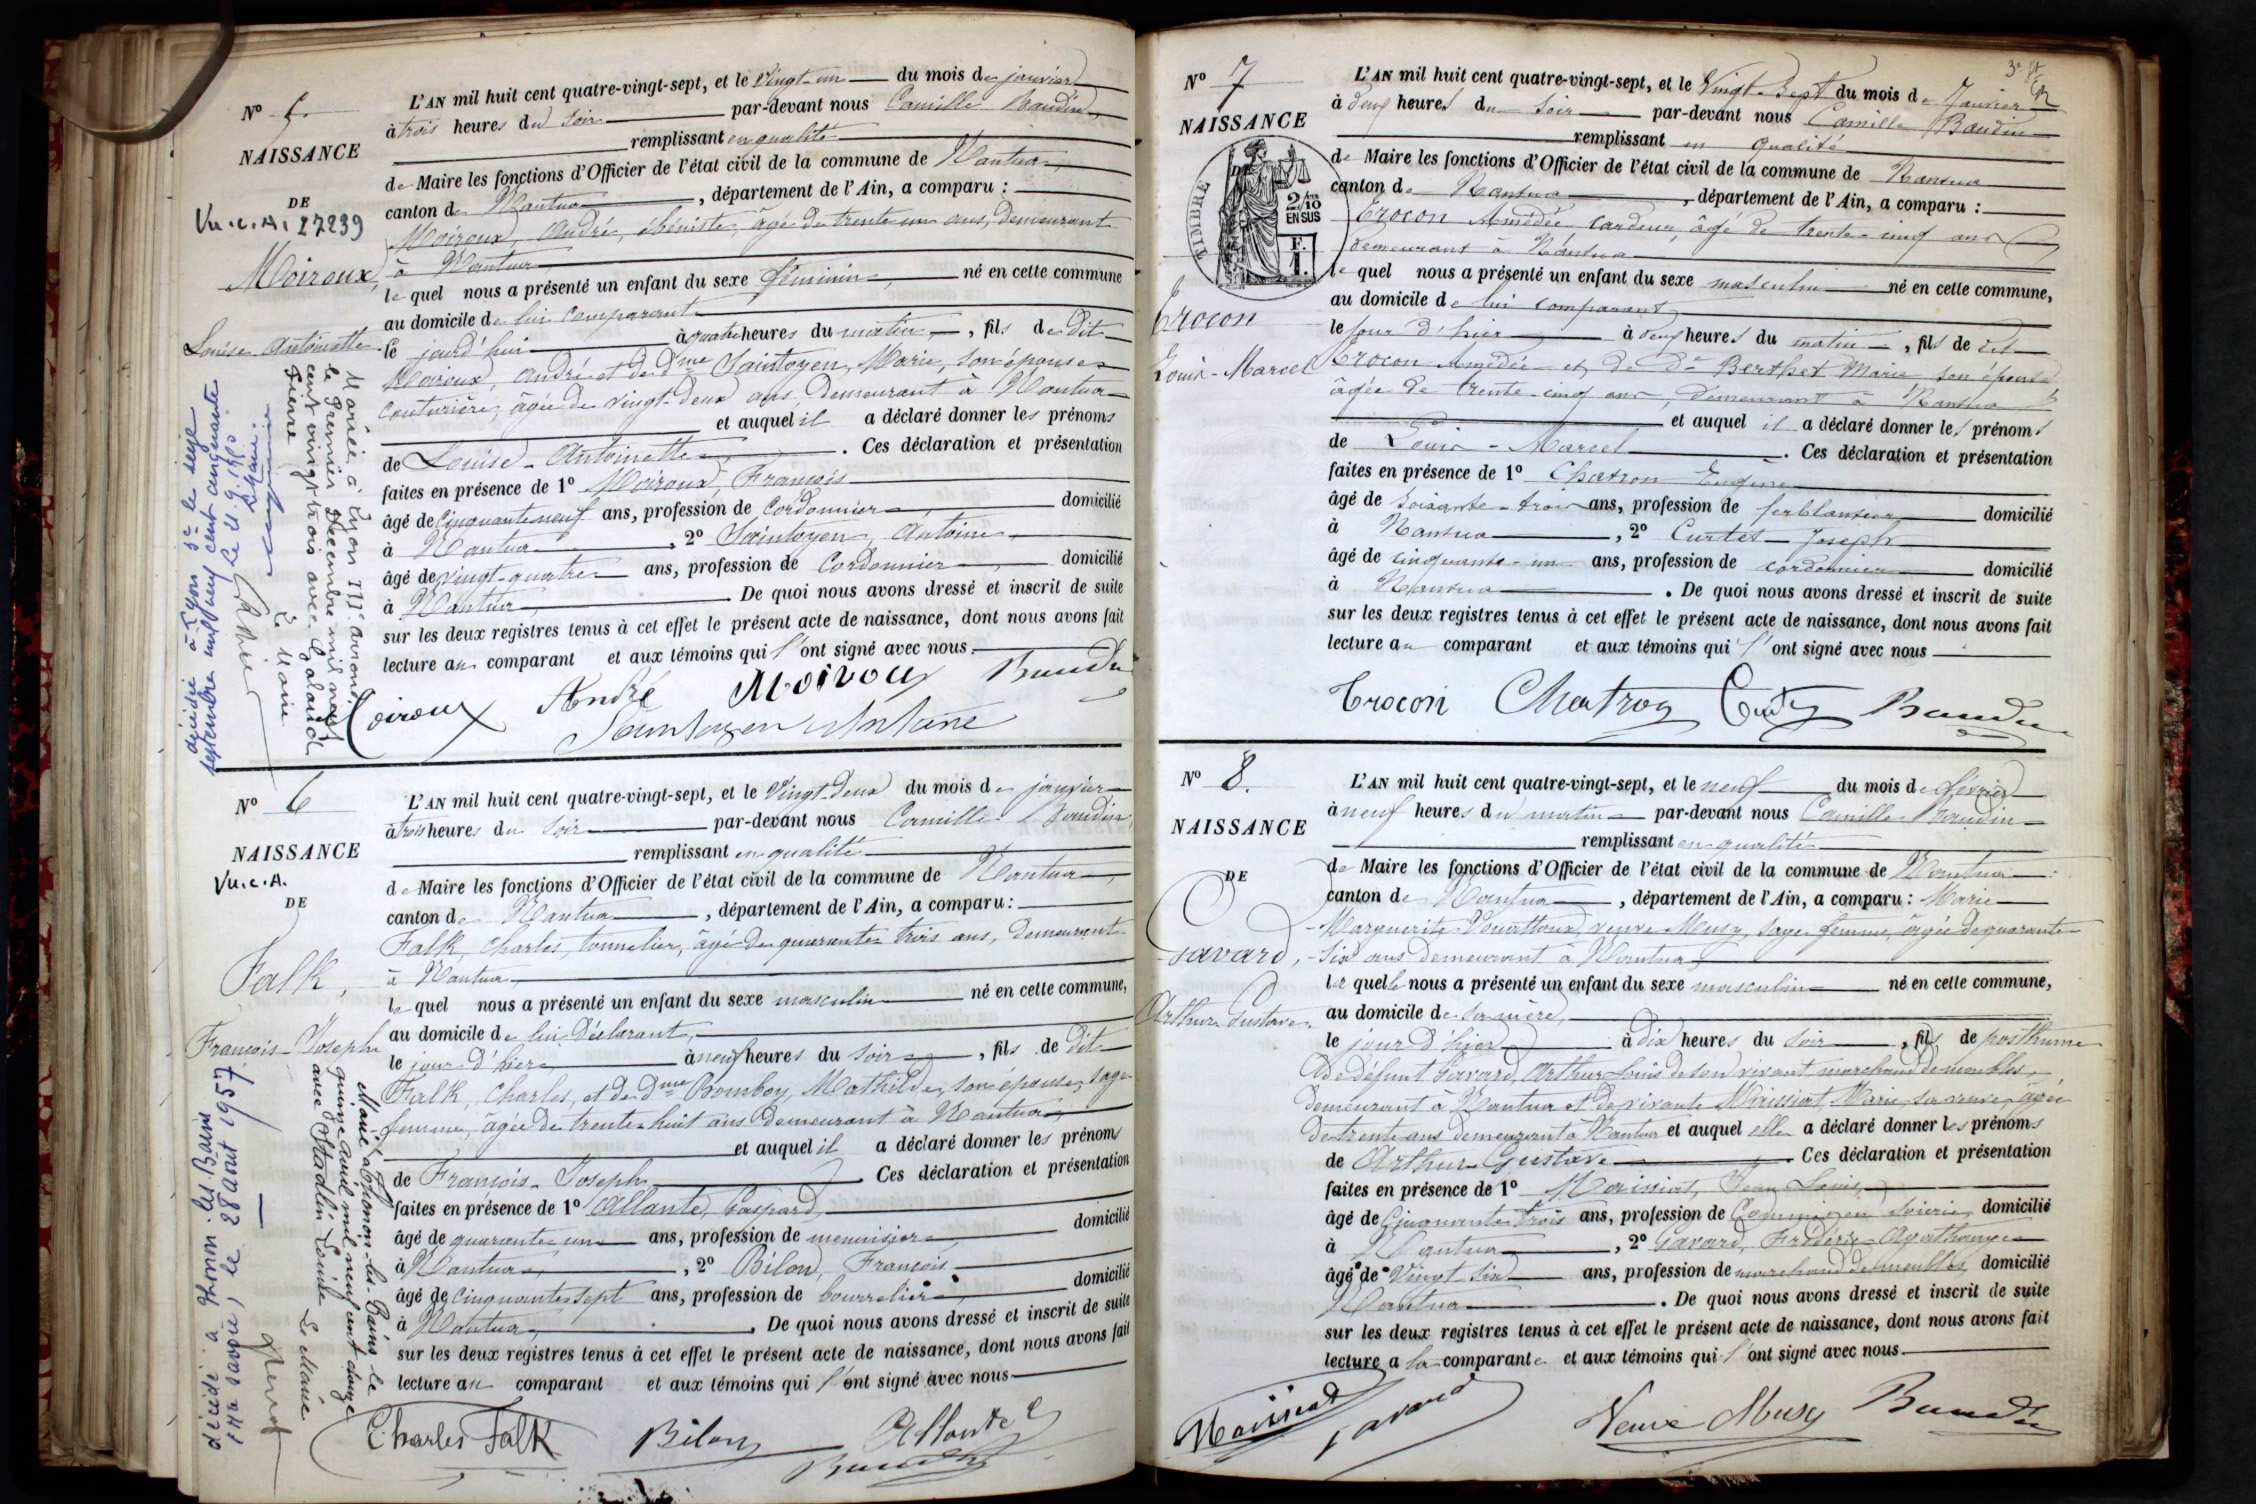 N° 5.
NAISSANCE
DE
Vu.c.A. 27239
Moiroux,
Louise Antoinette
L'AN mil huit cent quatre-vingt-sept, et le vingt-un du mois de janvier
à trois heures du soir par-devant nous Camille Baudin,
remplissant en qualité
de Maire les fonctions d'Officier de l'état civil de la commune de Nantua,
canton de Nantua, département de l'Ain, a comparu :
Moiroux, André, ébéniste, âgé de trente un ans, demeurant
à Nantua
lequel nous a présenté un enfant du sexe féminin, né en cette commune
au domicile de lui comparant
le jourd'hui à quatre heures du matin, fils de dit
Moiroux, André et de dme Saintoyen, Marie, son épouse
couturière, âgée de vingt-deux ans, demeurant à Nantua
et auquel il a déclaré donner les prénoms
de Louise-Antoinette. Ces déclaration et présentation
faites en présence de 1° Moiroux, François
âgé de cinquante neuf ans, profession de cordonnier, domicilié
à Nantua, 2° Saintoyen, Antoine
âgé de vingt-quatre ans, profession de cordonnier, domicilié
à Nantua. De quoi nous avons dressé et inscrit de suite
sur les deux registres tenus à cet effet le présent acte de naissance, dont nous avons fait
lecture au comparant et aux témoins qui l'ont signé avec nous.
Moiroux André Moiroux Baudin
Saintoyen Antoine
Mariée à Lyon IIIe arrond
le premier Décembre mil neuf
cent vingt trois avec Galaud
Pierre
Le Maire
décédée à Lyon 3e le seize
septembre mil neuf cent cinquante
Le 21.9.1950
N° 6
NAISSANCE
Vu.c.A.
DE
Falk,
François-Joseph
L'AN mil huit cent quatre-vingt-sept, et le vingt-deux du mois de janvier
à trois heures du soir par-devant nous Camille Baudin,
remplissant en qualité
de Maire les fonctions d'Officier de l'état civil de la commune de Nantua,
canton de Nantua, département de l'Ain, a comparu :
Falk, Charles, tonnelier, âgé de quarante trois ans, demeurant
à Nantua
lequel nous a présenté un enfant du sexe masculin né en cette commune,
au domicile de lui déclarant,
le jour d'hier à neuf heures du soir, fils de dit
Falk, Charles, et de dme Bomboy, Mathilde, son épouse, sage
femme, âgée de trente-huit ans demeurant à Nantua
et auquel il a déclaré donner les prénoms
de François-Joseph. Ces déclaration et présentation
faites en présence de 1° Allante, Gaspard
âgé de quarante un ans, profession de menuisier domicilié
à Nantua, 2° Bilon, François
âgé de cinquante sept ans, profession de bourrelier, domicilié
à Nantua, De quoi nous avons dressé et inscrit de suite
sur les deux registres tenus à cet effet le présent acte de naissance, dont nous avons fait
lecture au comparant et aux témoins qui l'ont signé avec nous
Charles Falk Bilon Allante
Baudin
Marié à Thonon-les-Bains le
quinze avril mil neuf cent douze
avec Stadlin Louise
Le Maire
décédé à Thonon les Bains
Hte Savoie, le 28 août 1957
3e ft
N° 7
NAISSANCE
TIMBRE
2/10
EN SUS
F.
1.
Trocon
Louis-Marcel
L'AN mil huit cent quatre-vingt-sept, et le Vingt-Sept du mois de Janvier
à deux heures du soir par-devant nous Camille Baudin
remplissant en qualité
de Maire les fonctions d'Officier de l'état civil de la commune de Nantua
canton de Nantua, département de l'Ain, a comparu :
Trocon Amédée, cardeur, âgé de trente-cinq ans
demeurant à Nantua
lequel nous a présenté un enfant du sexe masculin né en cette commune,
au domicile de lui comparant
le jour d'hier à deux heures du matin, fils de dit
Trocon Amédée et de De Berthet Marie son épouse
âgée de trente-cinq ans, demeurant à Nantua
et auquel il a déclaré donner les prénoms
de Louis-Marcel. Ces déclaration et présentation
faites en présence de 1° Chatron Eugène
âgé de soixante-trois ans, profession de ferblantier domicilié
à Nantua, 2° Curtet Joseph
âgé de cinquante-un ans, profession de cordonnier domicilié
à Nantua. De quoi nous avons dressé et inscrit de suite
sur les deux registres tenus à cet effet le présent acte de naissance, dont nous avons fait
lecture au comparant et aux témoins qui l'ont signé avec nous
Trocon Chatron Curtet Baudin
N° 8.
NAISSANCE
DE
Gavard,
Arthur Gustave.
L'AN mil huit cent quatre-vingt-sept, et le neuf du mois de février
à neuf heures du matin par-devant nous Camille Baudin
remplissant en qualité
de Maire les fonctions d'Officier de l'état civil de la commune de Nantua
canton de Nantua, département de l'Ain, a comparu : Marie
Marguerite veuve Musy, sage-femme, âgée de quarante
six ans demeurant à Nantua
laquelle nous a présenté un enfant du sexe masculin né en cette commune,
au domicile de sa mère,
le jour d'hier à dix heures du soir, fils de posthume
de défunt Gavard, Arthur Louis de son vivant marchand de meubles,
demeurant à Nantua et de vivante Moissiat, Marie, sa veuve, âgée
de trente ans demeurant à Nantua et auquel elle a déclaré donner les prénoms
de Arthur Gustave. Ces déclaration et présentation
faites en présence de 1° Maissiat, Jean Louis,
âgé de cinquante trois ans, profession de Commis en soierie, domicilié
à Nantua, 2° Gavard, Frédéric
âgé de Vingt six ans, profession de marchand de meubles, domicilié
Nantua. De quoi nous avons dressé et inscrit de suite
sur les deux registres tenus à cet effet le présent acte de naissance, dont nous avons fait
lecture a la comparante et aux témoins qui l'ont signé avec nous
Maissiat Gavard Veuve Musy Baudin